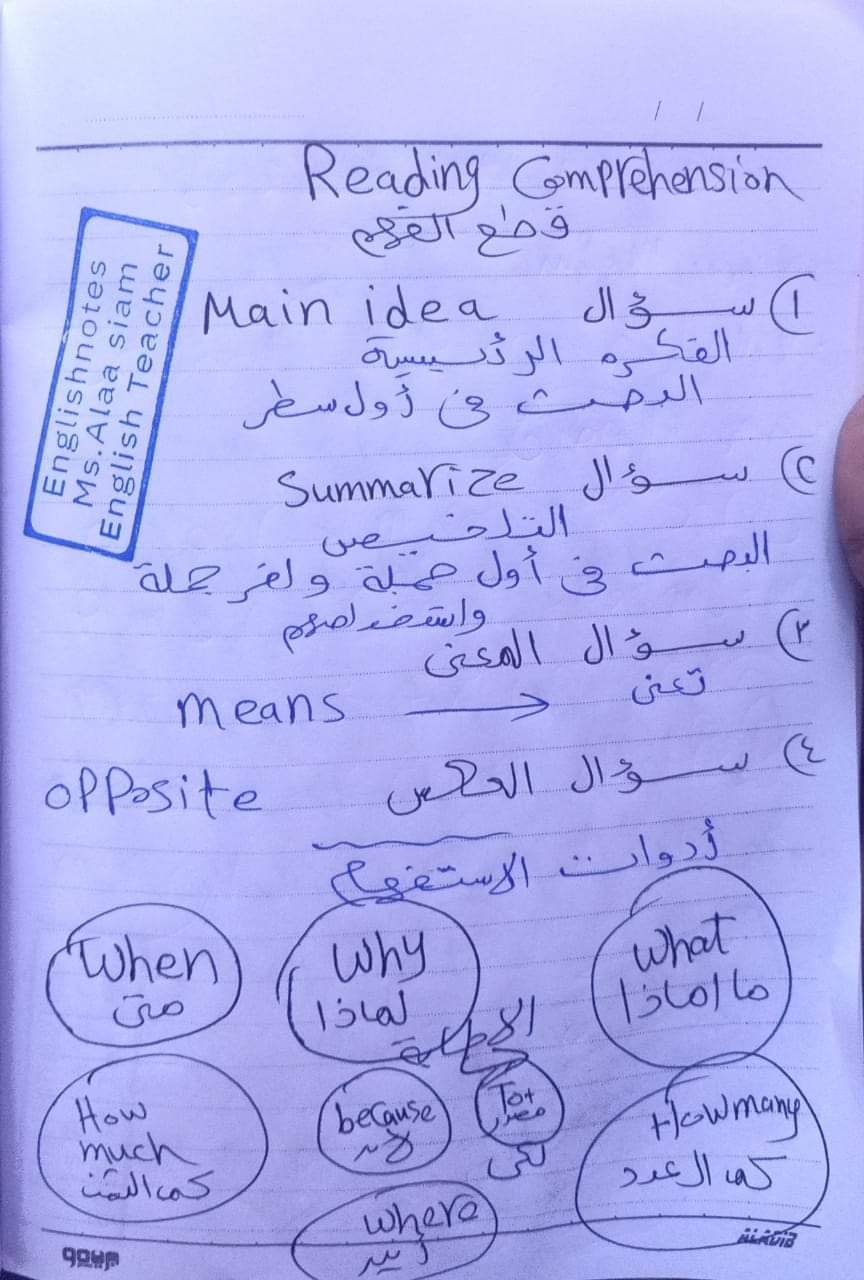 / /
Reading Comprehension
قطع الفهم
Englishnotes
Ms.Alaa siam
English Teacher
١) سؤال Main idea
الفكره الرئسيسية
البحث فى أول سطر
٢) سؤال Summarize
التلخيص
البحث فى أول جملة ولخر جملة
واستخراجهم
٣) سؤال المعنى
تعنى → means
٤) سؤال العكس opposite
أدوات الاستفهام
What
ما/ماذا
Why
لماذا
When
متى
الاجابة
How many
كم العدد
To+
مصدر
لكى
because
لأن
How
much
كم الثمن
where
أين